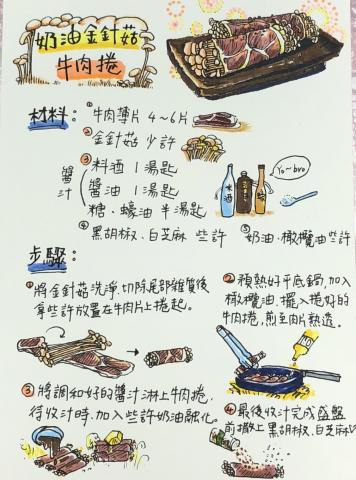 奶油金針菇
牛肉捲
材料：
① 牛肉薄片 4~6片
② 金針菇 少許
③ 醬汁
料酒 1 湯匙
醬油 1 湯匙
糖、蠔油 半湯匙
米酒
糖
Yo~bro
④ 黑胡椒、白芝麻 些許
⑤ 奶油、橄欖油些許
步驟：
① 將金針菇洗淨，切除尾部雜質後
拿些許放置在牛肉片上捲起。
② 預熱好平底鍋，加入
橄欖油，擺入捲好的
牛肉捲，煎至肉片熟透。
③ 將調和好的醬汁淋上牛肉捲，
待收汁時，加入些許奶油融化。
④ 最後收汁完成盛盤
前撒上黑胡椒、白芝麻